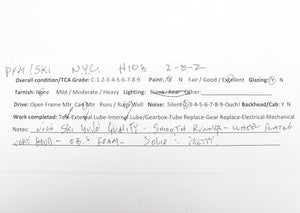 PFM/SKI N.Y.C. H10B 2-8-2
Overall condition/TCA Grade: C-1-2-3-4-5-6-7-8-9 Paint: Y N Fair / Good / Excellent Glazing: Y N
Tarnish: None Mild / Moderate / Heavy Lighting: Front Rear Other:
Drive: Open Frame Mtr Can Mtr Runs / Runs Well Noise: Silent 2-3-4-5-6-7-8-9-Ouch! Backhead/Cab: Y N
Work completed: Test-External Lube-Internal Lube/Gearbox-Tube Replace-Gear Replace-Electrical-Mechanical
Notes: NICE SKI BUILD QUALITY - SMOOTH RUNNER - WHEEL PLATING
VERY GOOD - OB & FOAM - SOLID & PRETTY.